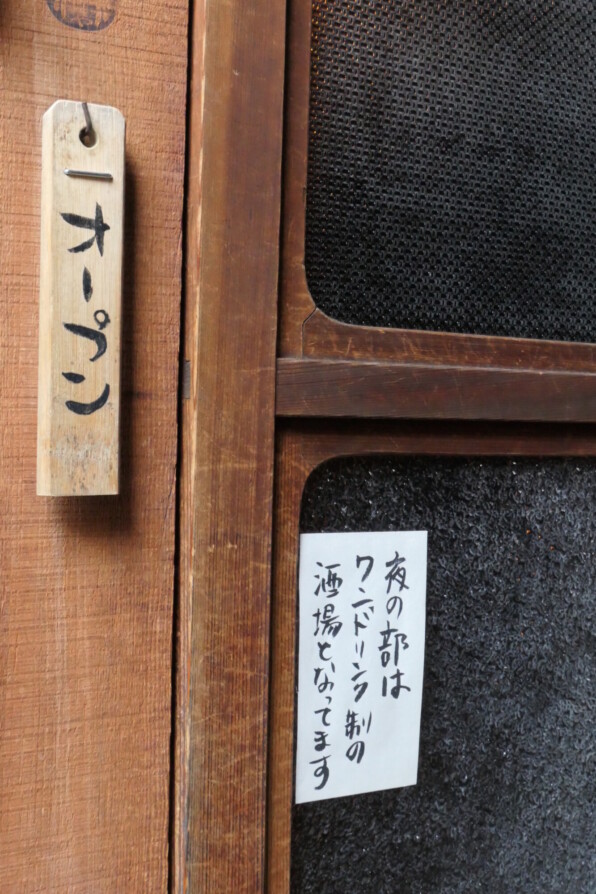 オープン
夜の部は
ワンドリンク制の
酒場となってます